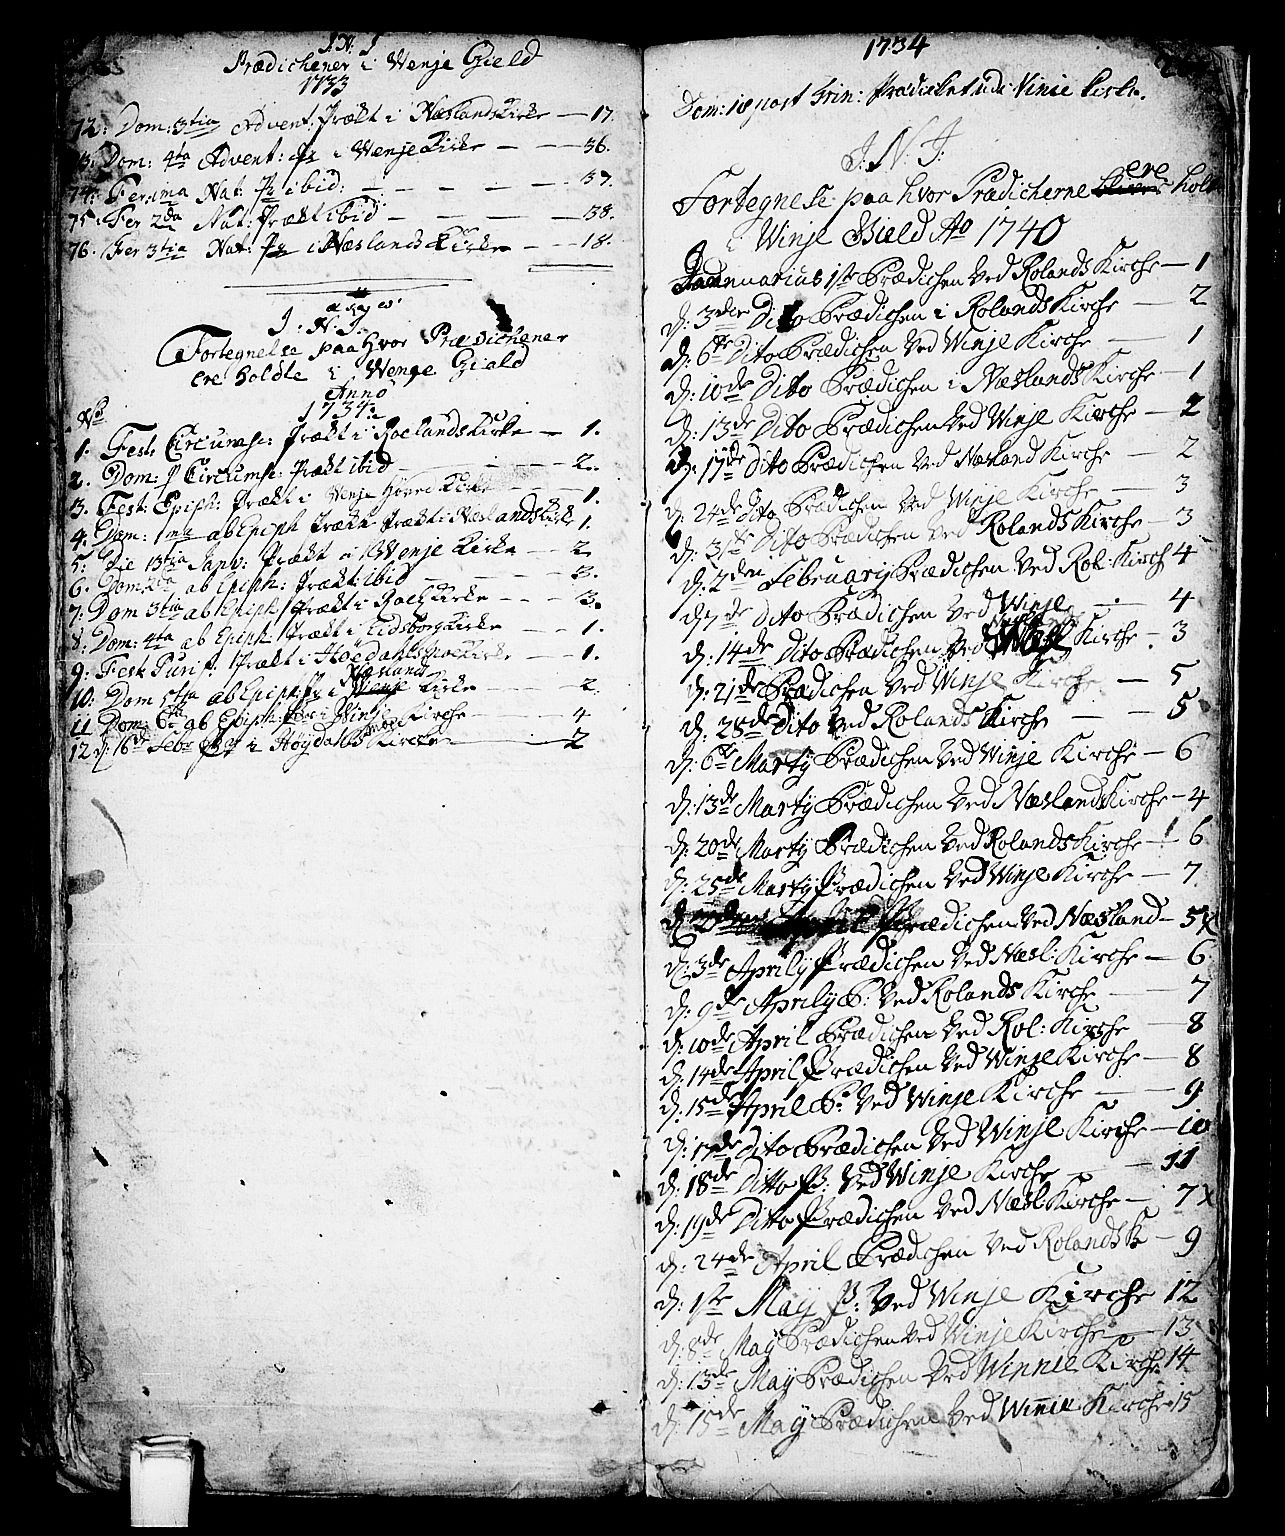 J. N. J
Prædichener i Wenje Gield
1733
72: Dom: 3tia Advent: Prækt i NæslandsKirke — 17.
73. Dom: 4ta Advent: Pr i WenjeKirke — 36.
74. Fer: 1ma Nat: Pr ibid: — 37.
75. Fer 2da Nat: Prækt ibid — 38.
76. Fer 3tia Nat: Pr i Næslands Kirke — 18.
J. N. J.
Fortegnelse paa hvor Prædichener
ere holdte i Wenge Gield
Anno
1734:
No
1. Fest: Circumcis: Prækt i RoelandsKirke — 1.
2. Dom: p Circums: Prækt ibid — 2.
3. Fest: Epiph: Prækt i Venje Hoved Kirke — 1.
4. Dom: 1ma ab Epiph Prækt i NæslandsKirke 1.
5. Die 13tia Janv: Prækt i Wenje Kirke — 2.
6. Dom: 2da ab Epiph: Prækt: ibid — 3.
7: Dom 3tia ab Epiph: Prækt i RoelKirke — 3.
8. Dom: 4ta ab Epiph Prækt i EidsborgKirke — 1.
9. Fest: Purif: Prækt i Høgdahls Kirke — 1.
Næslands
10. Dom 5ta ab Epiph: Pr i Wenje Kirke — 2.
11 Dom: 6ta ab Epiph: i Winje Kirche — 4
12 d: 16de Febr i Høydahls Kirche — 2
1734
Dom: 18 post Trin: Prædicket udi Vinie Kirke.
J. N. J.
ere
Fortegnelse paa hvor Prædicherne holt
i Winje Gield Ao 1740
Januarius 1ste Prædichen Ved Rolands Kirche — 1
d: 3die Dito Prædichen i Rolands Kirche — 2
d: 6te Dito Prædichen Ved Winje Kirche — 1
d: 10de Dito Prædichen i Næslands Kirche — 1
d: 13de Dito Prædichen Ved Winje Kirche — 2
d: 17de Dito Prædichen Ved Næsland Kirche — 2
d: 24de Dito Prædichen Ved Winje Kirche — 3
d: 31te Dito Prædichen Ved Rolands Kirche — 3
d: 2den February Prædichen Ved Rol: Kirch 4
d 7de Dito Prædichen Ved Winje — 4
d: 14de Dito Prædichen Ved Kirche — 3
d: 21de Prædichen Ved Winje Kirche — 5
d: 28de Dito Ved Rolands Kirche — 5
d: 6te Marty Prædichen Ved Winje Kirche — 6
d: 13de Marty Prædichen Ved Næslands Kirche — 4
d: 20de Marty Prædichen Ved Rolands Kirche — 6
d: 25de Marty Prædichen Ved Winje Kirche — 7
Prædichen Ved Næsland — 5x
d: 3de Aprily Prædichen Ved Næsl: Kirche — 6
d: 9de Aprily P: Ved Rolands Kirche — 7
d: 10de April Prædichen Ved Rol: Kirche — 8
d: 14de April Prædichen Ved Winje Kirche — 8
d: 15de April P: Ved Winje Kirche — 9
d: 17de Dito Prædichen Ved Winje Kirche — 10
d: 18de Ditto P: Ved Winje Kirche — 11
d: 19de Dito Prædichen Ved Næsl: Kirche — 7x
d: 24de April Prædichen Ved Rolands K — 9
d: 1ste May P: Ved Winje Kirche 12
d: 8de May Prædichen Ved Winje Kirche — 13
d: 13de May Prædichen Ved Winnie Kirche 14
d: 15de May Prædichen Ved Winnie Kirche 15